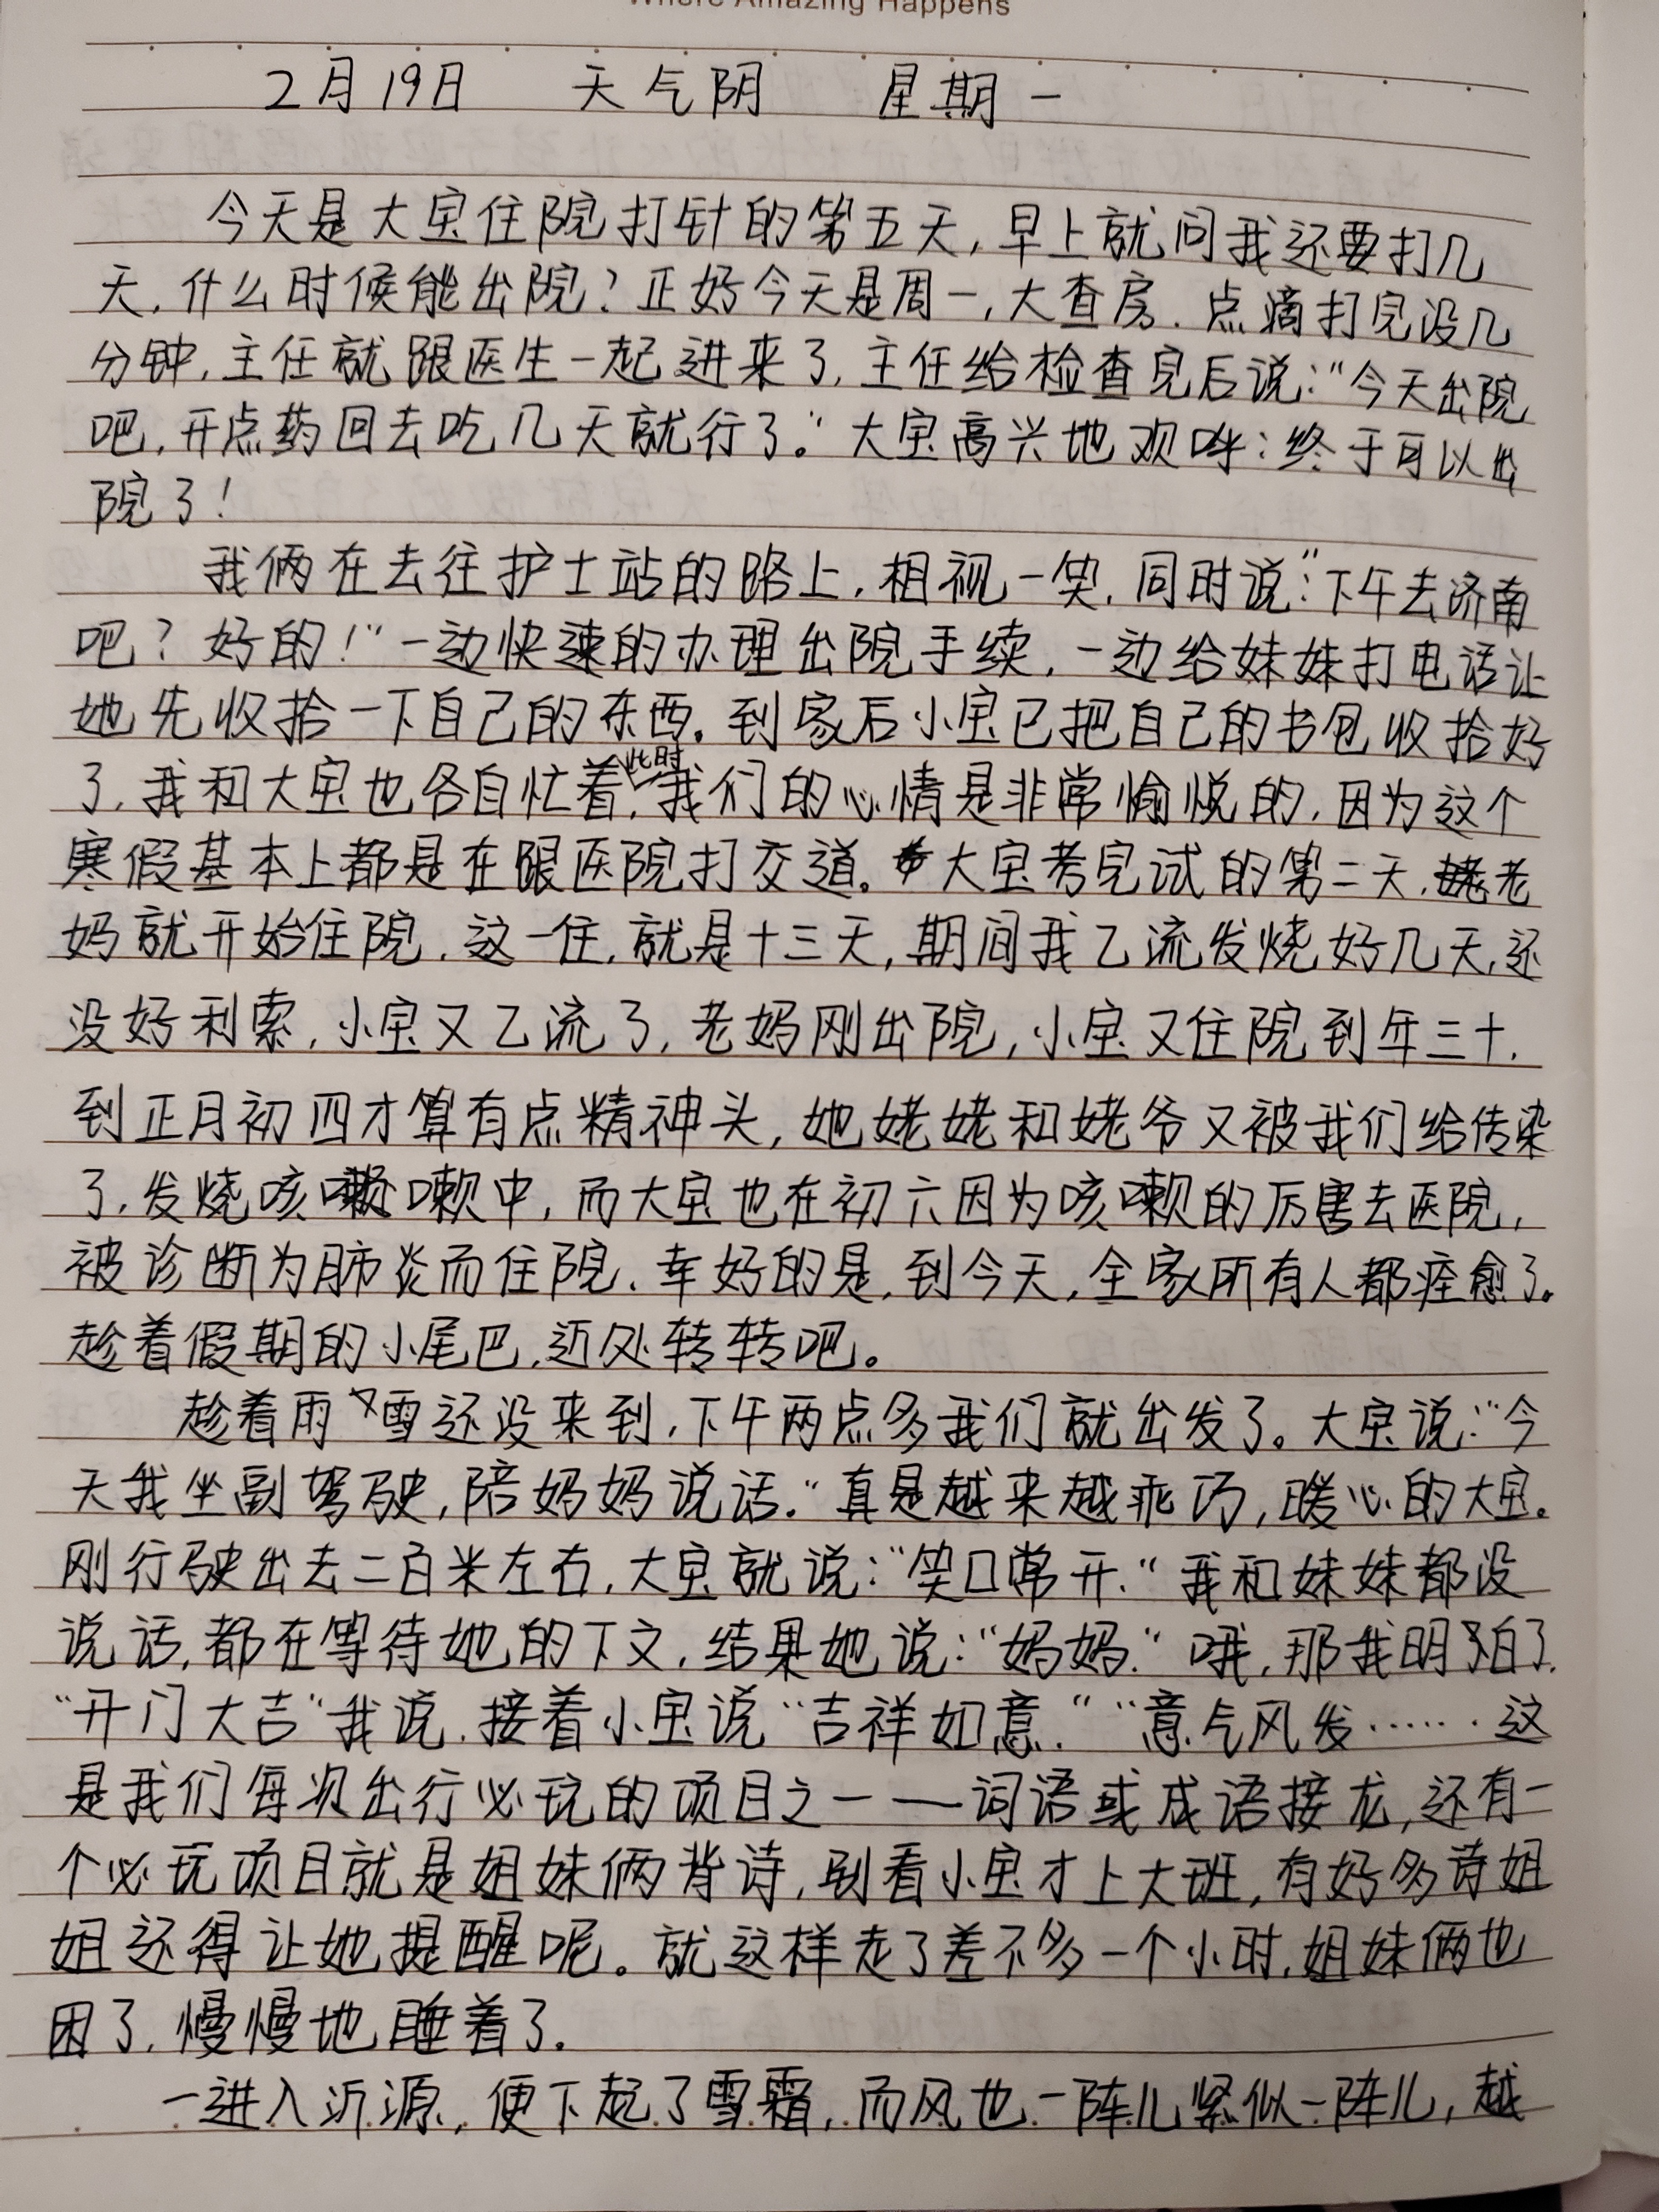 Where Amazing Happens
2月19日 天气阴 星期一
今天是大宝住院打针的第五天,早上就问我还要打几
天,什么时候能出院?正好今天是周一,大查房.点滴打完没几
分钟,主任就跟医生一起进来了,主任给检查完后说:“今天出院
吧,开点药回去吃几天就行了。”大宝高兴地欢呼:终于可以出
院了!
我俩在去往护士站的路上,相视一笑,同时说:“下午去济南
吧?好的!”一边快速的办理出院手续,一边给妹妹打电话让
她先收拾一下自己的东西。到家后小宝已把自己的书包收拾好
了,我和大宝也各自忙着,此时我们的心情是非常愉悦的,因为这个
寒假基本上都是在跟医院打交道。大宝考完试的第二天,老
妈就开始住院,这一住,就是十三天,期间我乙流发烧好几天,还
没好利索,小宝又乙流了,老妈刚出院,小宝又住院到年三十,
到正月初四才算有点精神头,她姥姥和姥爷又被我们给传染
了,发烧咳嗽中,而大宝也在初六因为咳嗽的厉害去医院,
被诊断为肺炎而住院.幸好的是,到今天,全家所有人都痊愈了。
趁着假期的小尾巴,近处转转吧。
趁着雨雪还没来到,下午两点多我们就出发了。大宝说:“今
天我坐副驾驶,陪妈妈说话.”真是越来越乖巧,暖心的大宝。
刚行驶出去二百米左右,大宝就说:“笑口常开.”我和妹妹都没
说话,都在等待她的下文,结果她说:“妈妈.”哦,那我明白了.
“开门大吉”我说,接着小宝说“吉祥如意.”“意气风发……这
是我们每次出行必玩的项目之一——词语或成语接龙,还有一
个必玩项目就是姐妹俩背诗,别看小宝才上大班,有好多诗姐
姐还得让她提醒呢。就这样走了差不多一个小时,姐妹俩也
困了,慢慢地睡着了.
一进入沂源,便下起了雪霜,而风也一阵儿紧似一阵儿,越